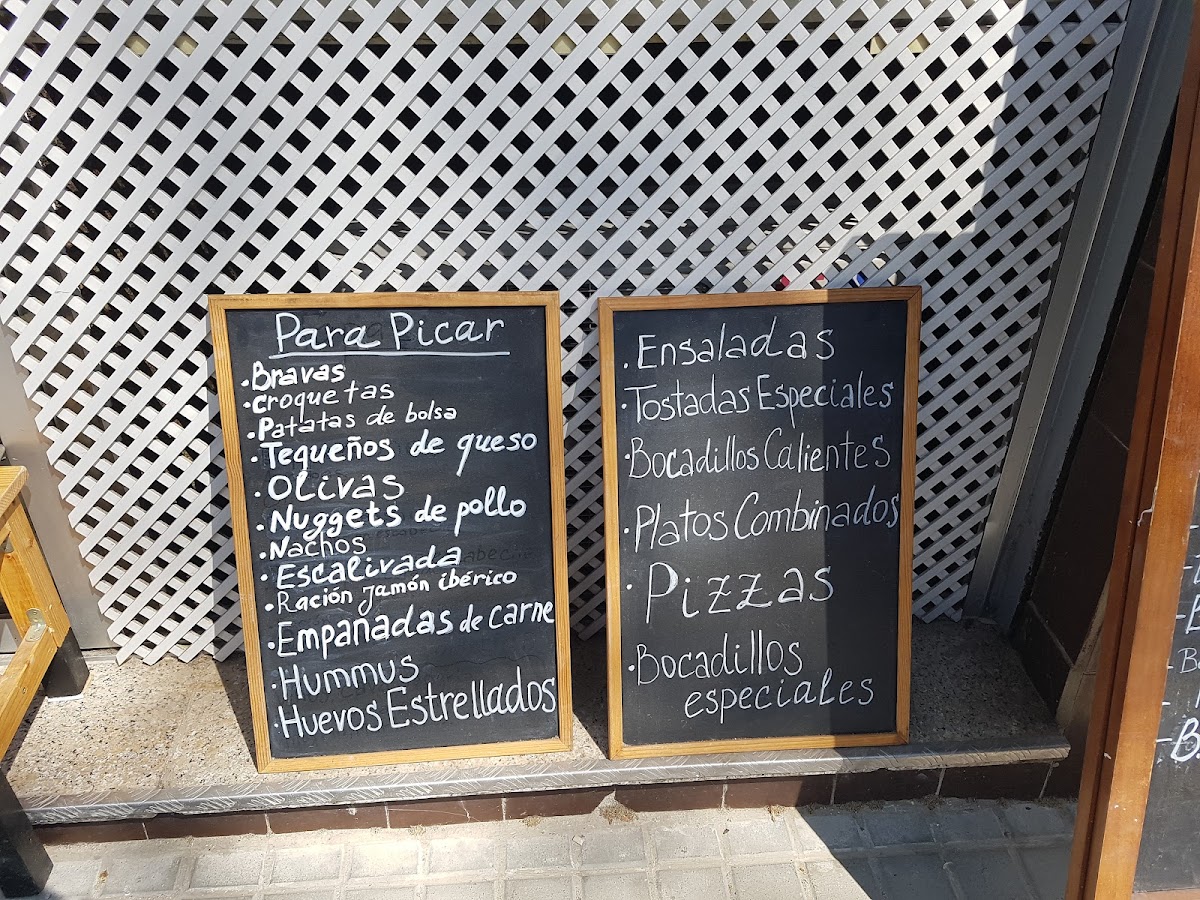 Para Picar
·Bravas
·Croquetas
·Patatas de bolsa
·Tequeños de queso
·Olivas
·Nuggets de pollo
·Nachos
·Escalivada
·Ración Jamón ibérico
·Empanadas de carne
·Hummus
·Huevos Estrellados
·Ensaladas
·Tostadas Especiales
·Bocadillos Calientes
·Platos Combinados
·Pizzas
·Bocadillos
especiales